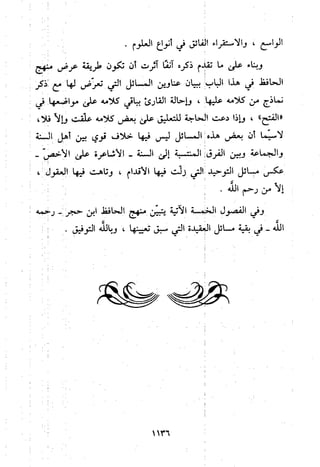 الواسع ، والاستقراء الفائق في أنواع العلوم .
وبناء على ما تقدم ذكره آنفاً آثرت أن تكون طريقة عرض منهج
الحافظ في هذا الباب ببيان عناوين المسائل التي تعرض لها مع ذكر
نماذج من كلامه عليها ، وإحالة القارئ لباقي كلامه على مواضعها في
«الفتح» ، وإذا دعت الحاجة للتعليق على بعض كلامه علقت وإلا فلا ،
لاسيما أن بعض هذه المسائل ليس فيها خلاف يذكر بين أهل السنة
والجماعة وبين الفرق المنتسبة إلى السنة - الأشاعرة على الأخص -
عكس مسائل التوحيد التي زلت فيها الأقدام ، وتاهت فيها العقول ،
إلا من رحم الله .
وفي الفصول الخمسة الآتية يتبين منهج الحافظ ابن حجر - رحمه
الله - في بقية مسائل العقيدة التي سبق تعيينها ، وبالله التوفيق .
١١٣٦